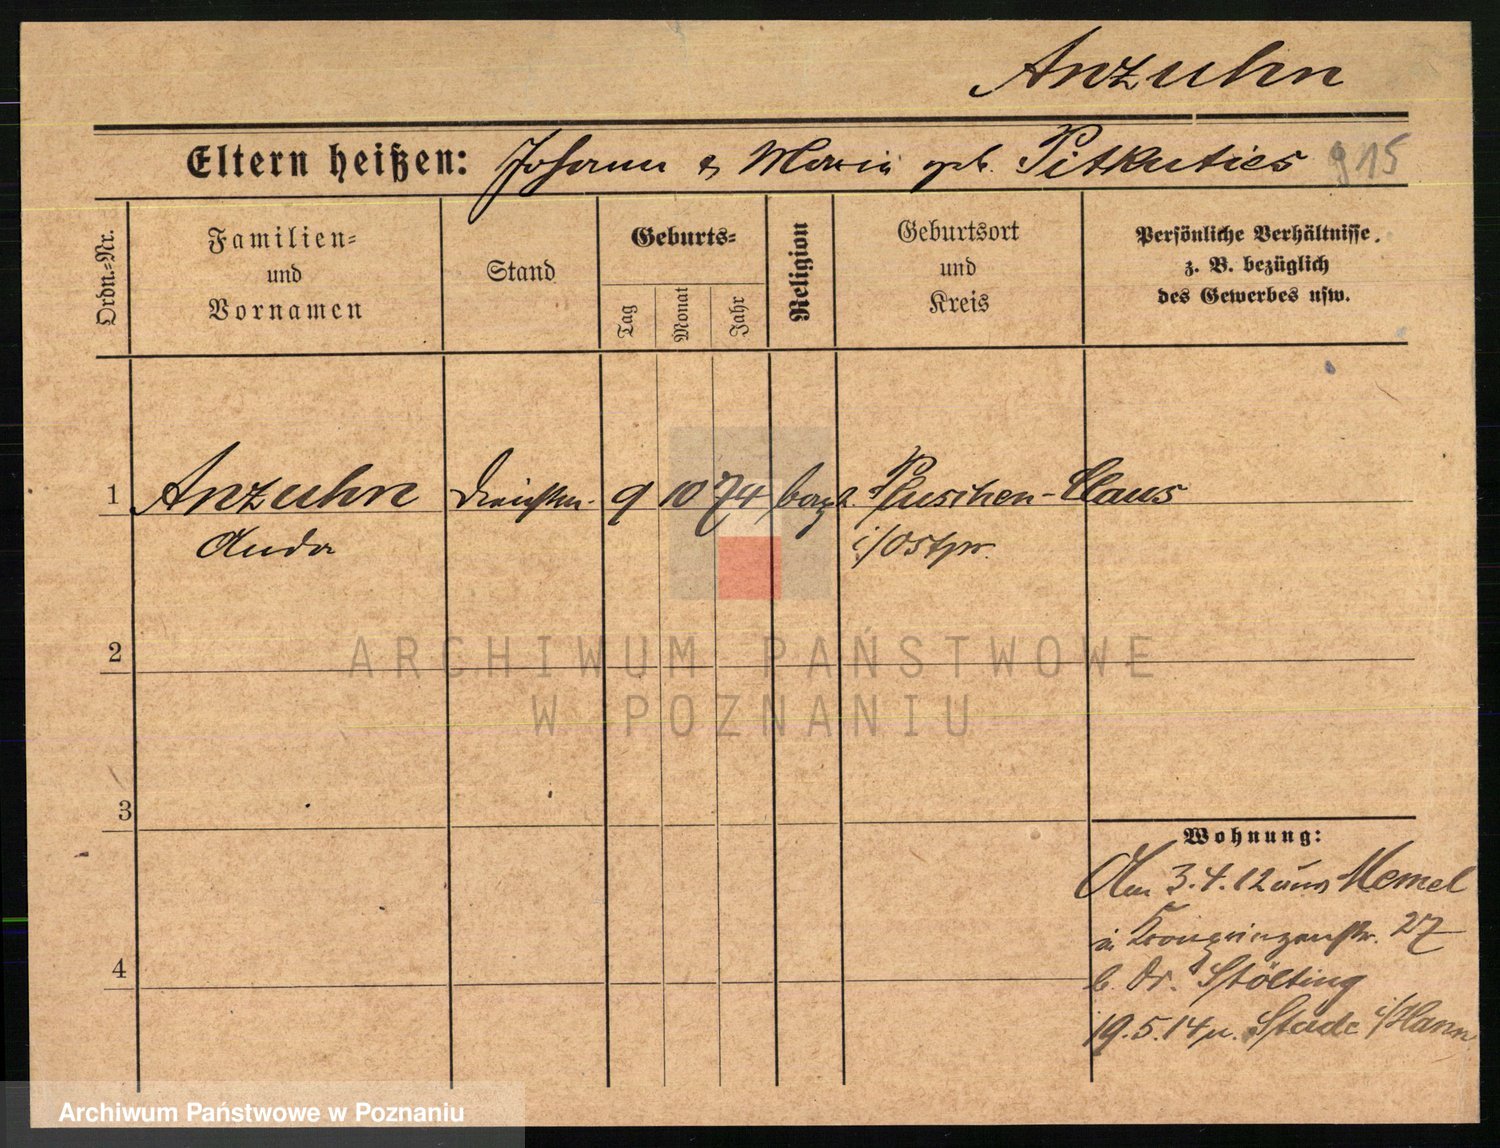 Anzuhn
Eltern heißen: Johann & Maria geb. Pitkuties 915
Ordn.=Nr.
Familien=
und
Vornamen
Stand
Geburts=
Tag
Monat
Jahr
Religion
Geburtsort
und
Kreis
Persönliche Verhältnisse,
z. B. bezüglich
des Gewerbes usw.
1 Anzuhn 9 10 74 Pluschen-Claus
i/Ostpr.
2
3
4
Wohnung:
Am 3.4.12 aus Memel
in Kronprinzenstr. 27
b. Dr. Stölting
19.5.14 n. Stade i/Hann
ARCHIWUM PAŃSTWOWE
W POZNANIU
Archiwum Państwowe w Poznaniu